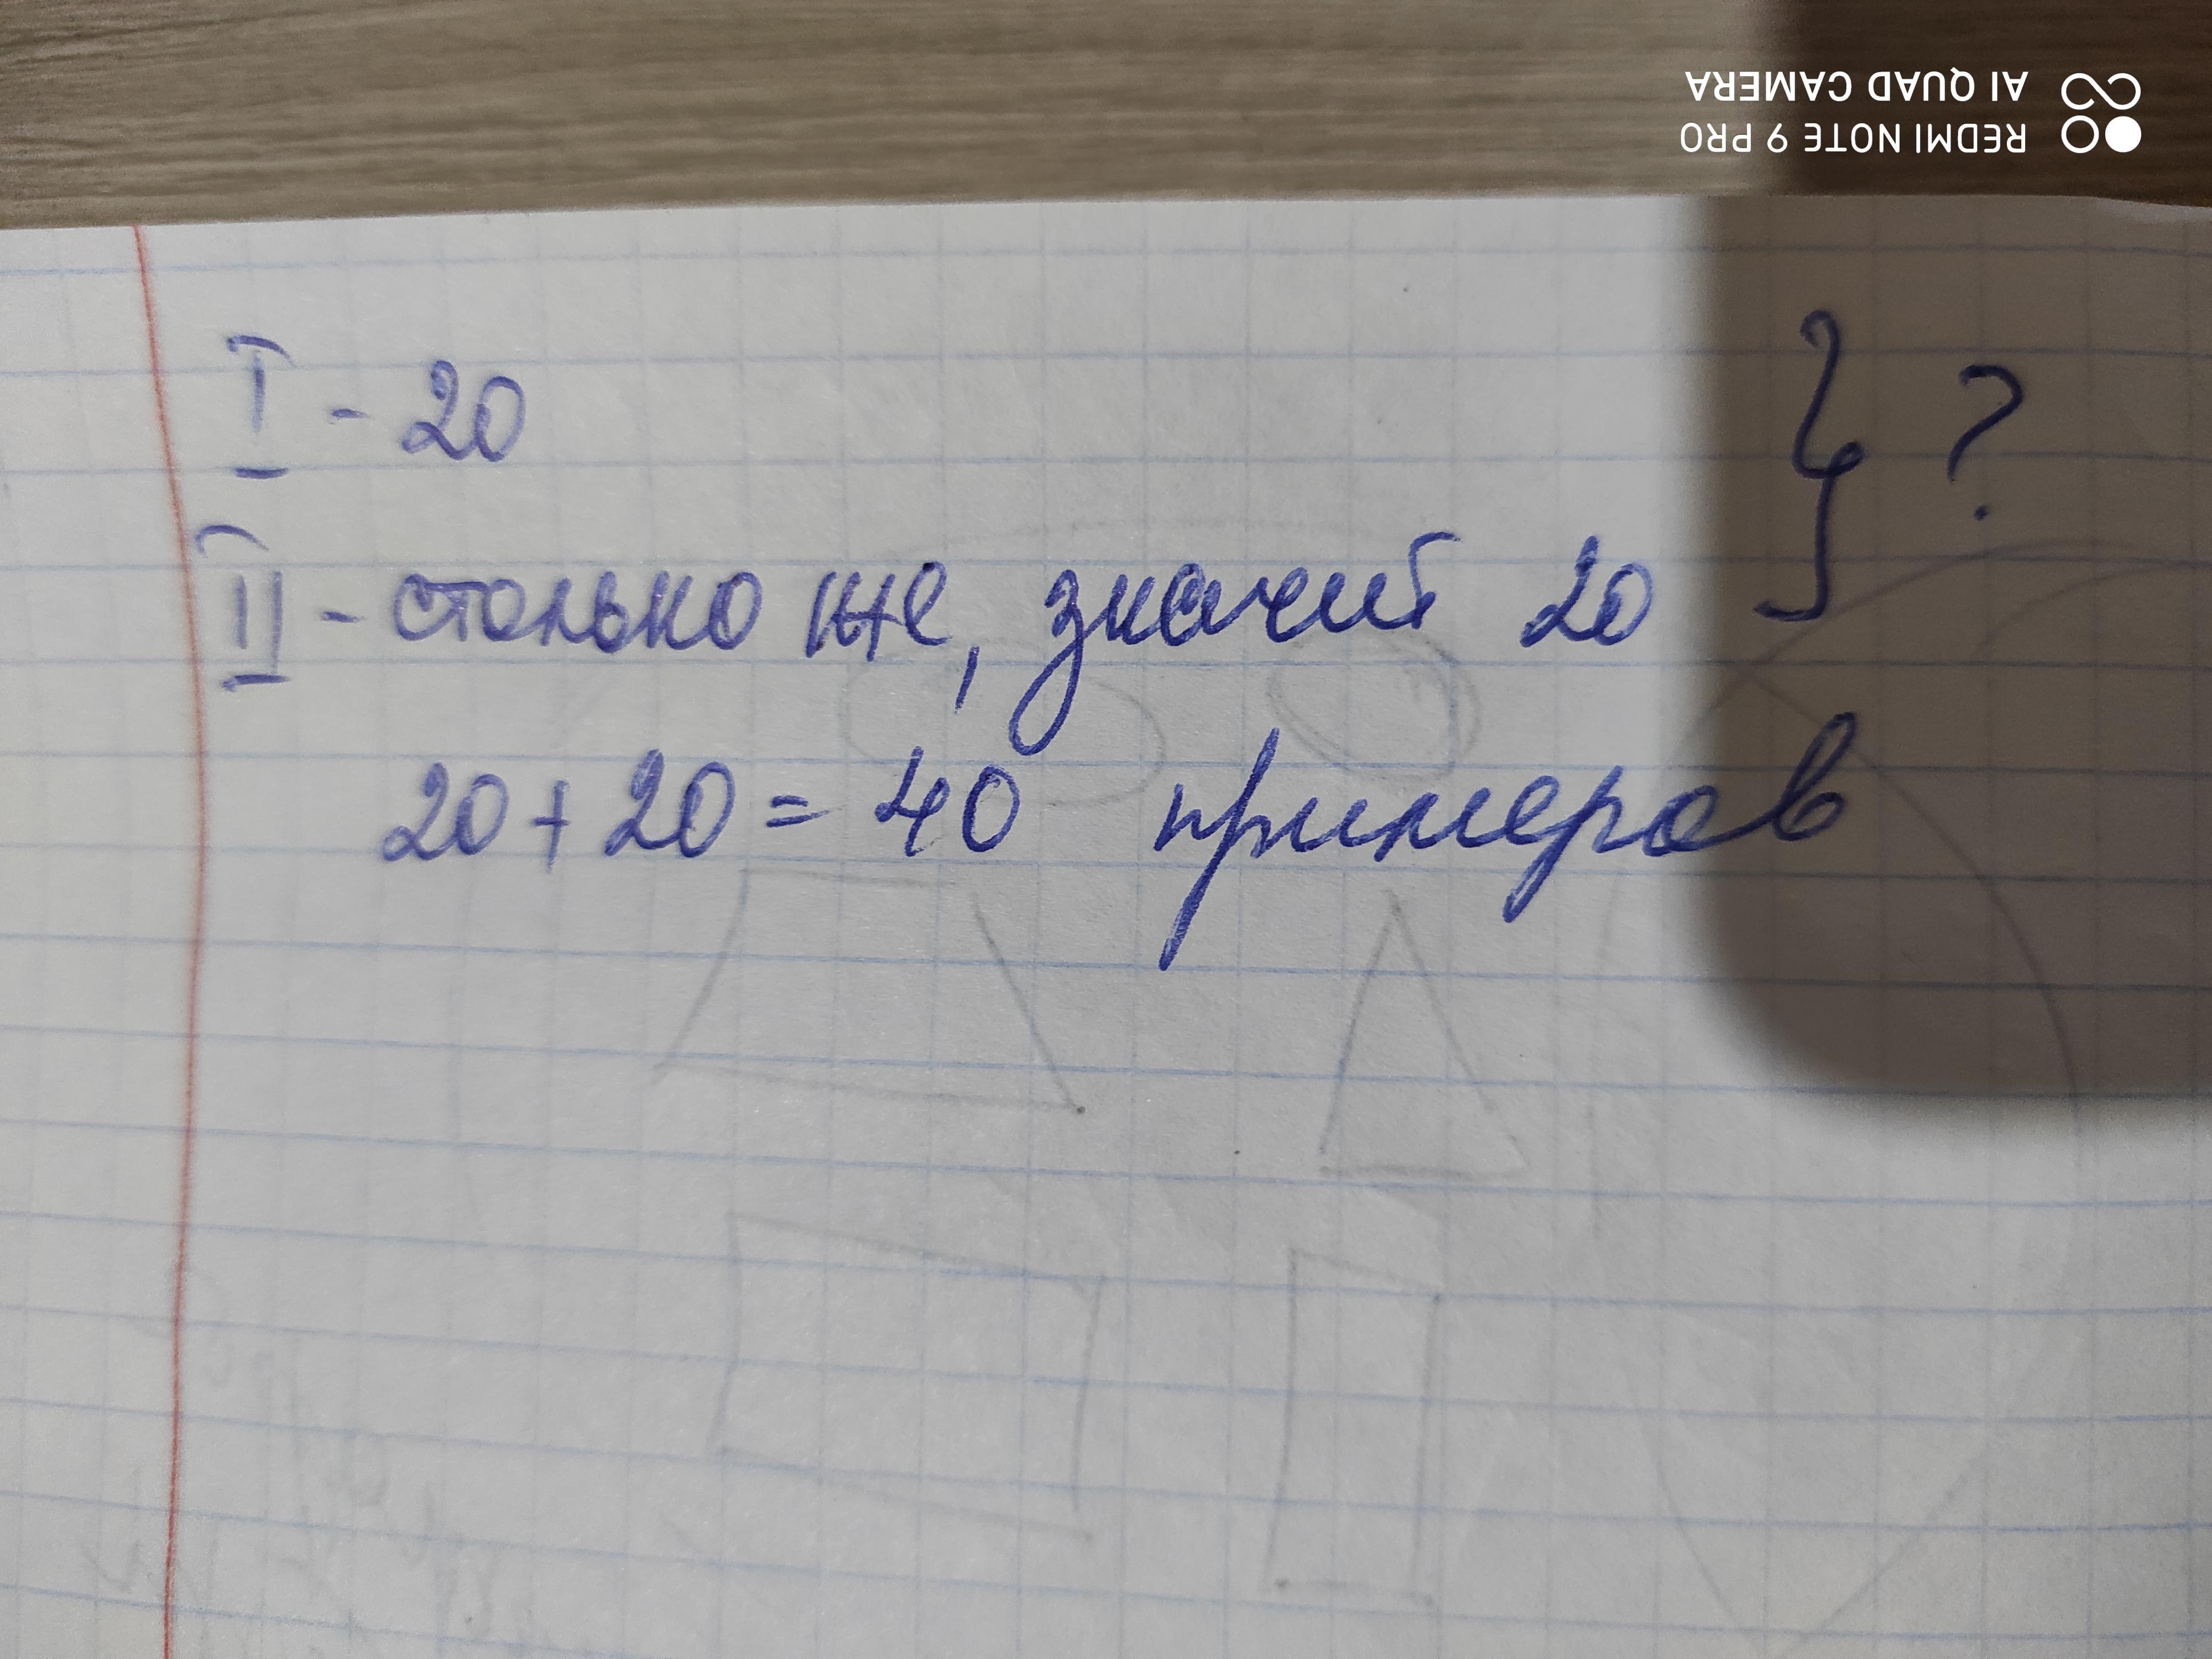 REDMI NOTE 9 PRO
AI QUAD CAMERA
I - 20
II - столько же, значит 20 } ?
20 + 20 = 40 примеров